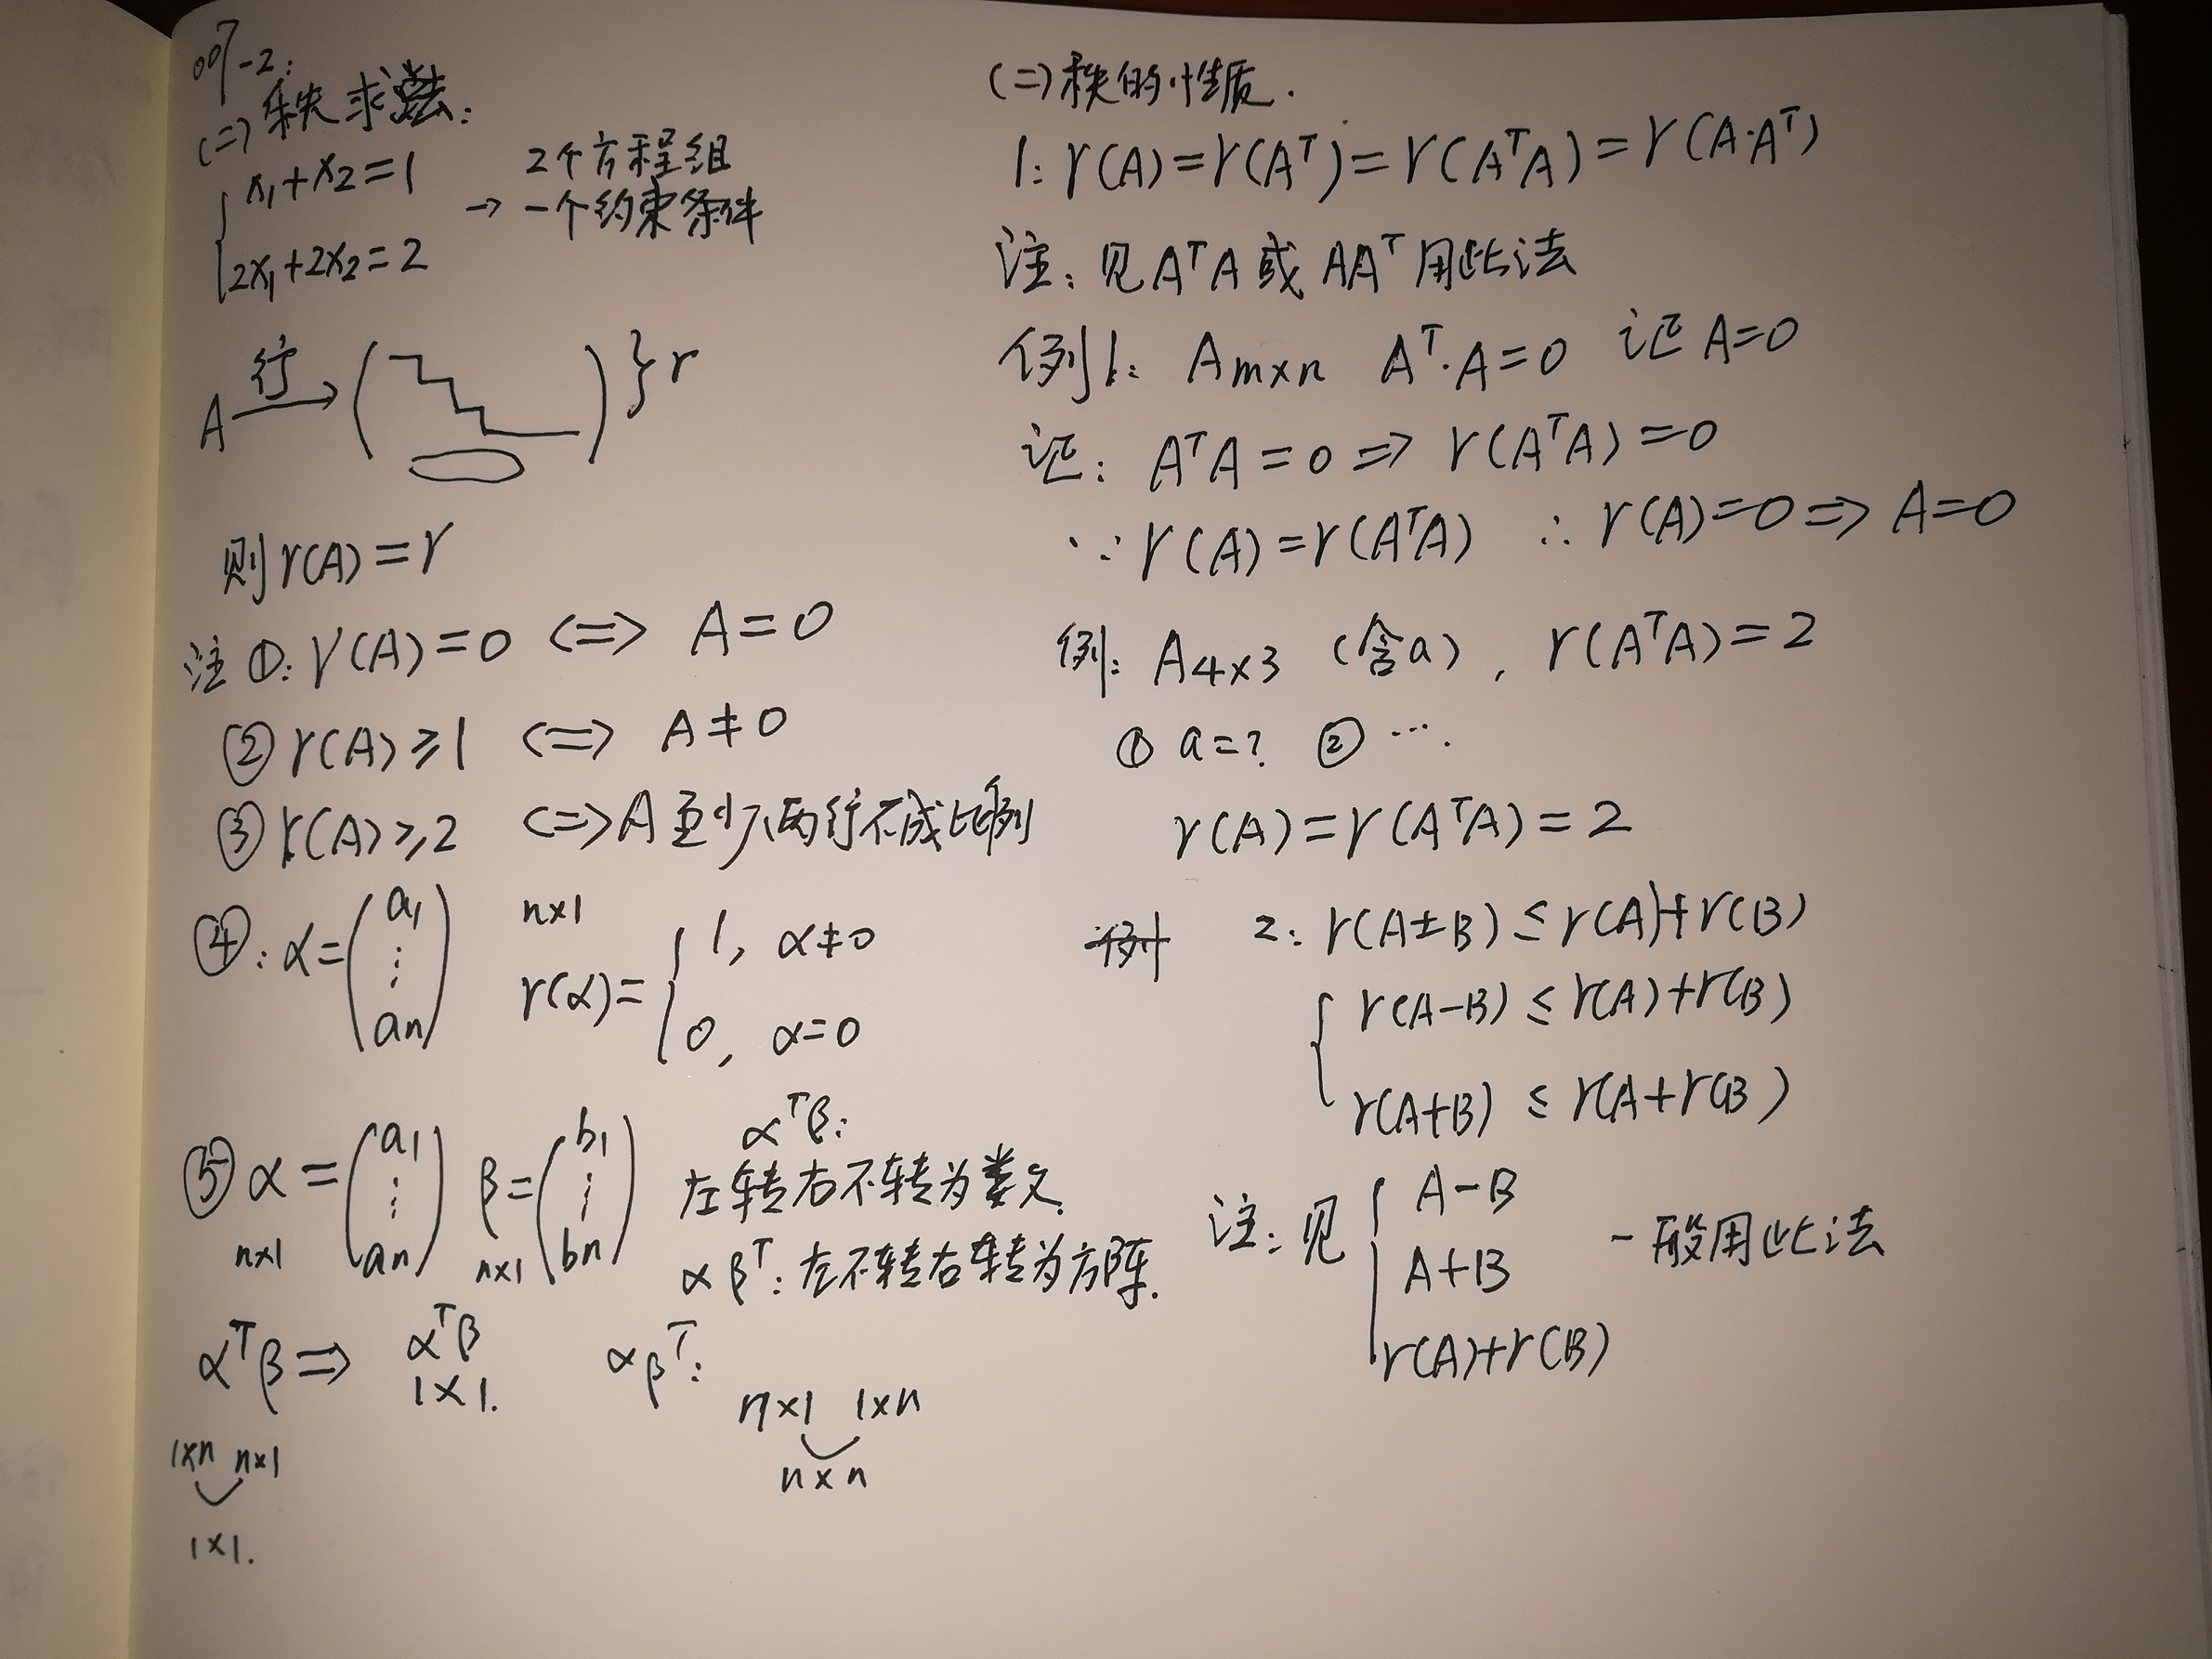 007-2:
(二)秩求法:
x₁+x₂=1
2x₁+2x₂=2
→ 2个方程组
一个约束条件
A 行→ ( ) } r
则 r(A)=r
注①: r(A)=0 <=> A=0
② r(A)≥1 <=> A≠0
③ r(A)≥2 <=> A至少两行不成比例
④: α=(a₁ ⋮ an) n×1
r(α)={ 1, α≠0
0, α=0
⑤ α=(a₁ ⋮ an) β=(b₁ ⋮ bn)
n×1 n×1
αᵀβ:
左转右不转为数.
αβᵀ: 左不转右转为方阵.
αᵀβ => αᵀβ αβᵀ:
1×1. n×1 1×n
1×n n×1 n×n
1×1.
(二)秩的性质.
1: r(A)=r(Aᵀ)=r(AᵀA)=r(A·Aᵀ)
注: 见AᵀA或AAᵀ用此法
例1: Am×n Aᵀ·A=0 证A=0
证: AᵀA=0 => r(AᵀA)=0
∵ r(A)=r(AᵀA) ∴ r(A)=0 => A=0
例: A4×3 (含a), r(AᵀA)=2
① a=? ② ….
r(A)=r(AᵀA)=2
2: r(A±B)≤r(A)+r(B)
{ r(A-B)≤r(A)+r(B)
r(A+B)≤r(A+r(B)
注: 见 { A-B
A+B 一般用此法
r(A)+r(B)